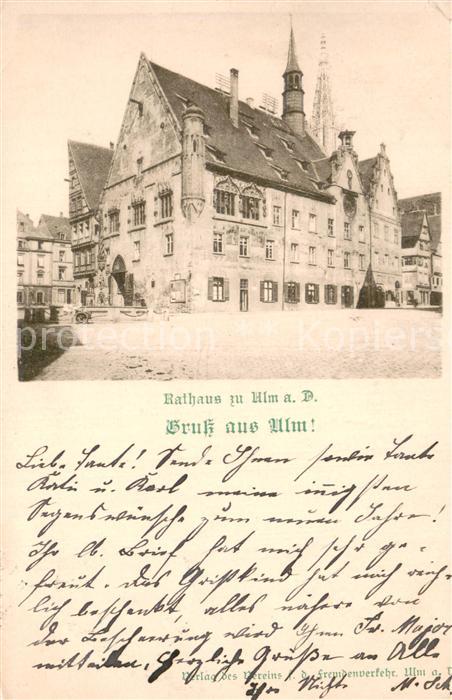 Rathaus zu Ulm a. D.
Gruß aus Ulm!
Liebe Tante! Sende Ihnen sowie Tante
Kati u. Karl meine innigsten
Segenswünsche zum neuen Jahre!
Ihr lb. Brief hat mich sehr ge-
freut. Das Christkind hat mich reich-
lich beschenkt, alles nähere von
der Bescheerung wird Ihnen Fr. Major
mitteilen. Herzliche Grüße an Alle
Verlag des Vereins f. d. Fremdenverkehr. Ulm a. D.
Ihre Nichte M. Sch